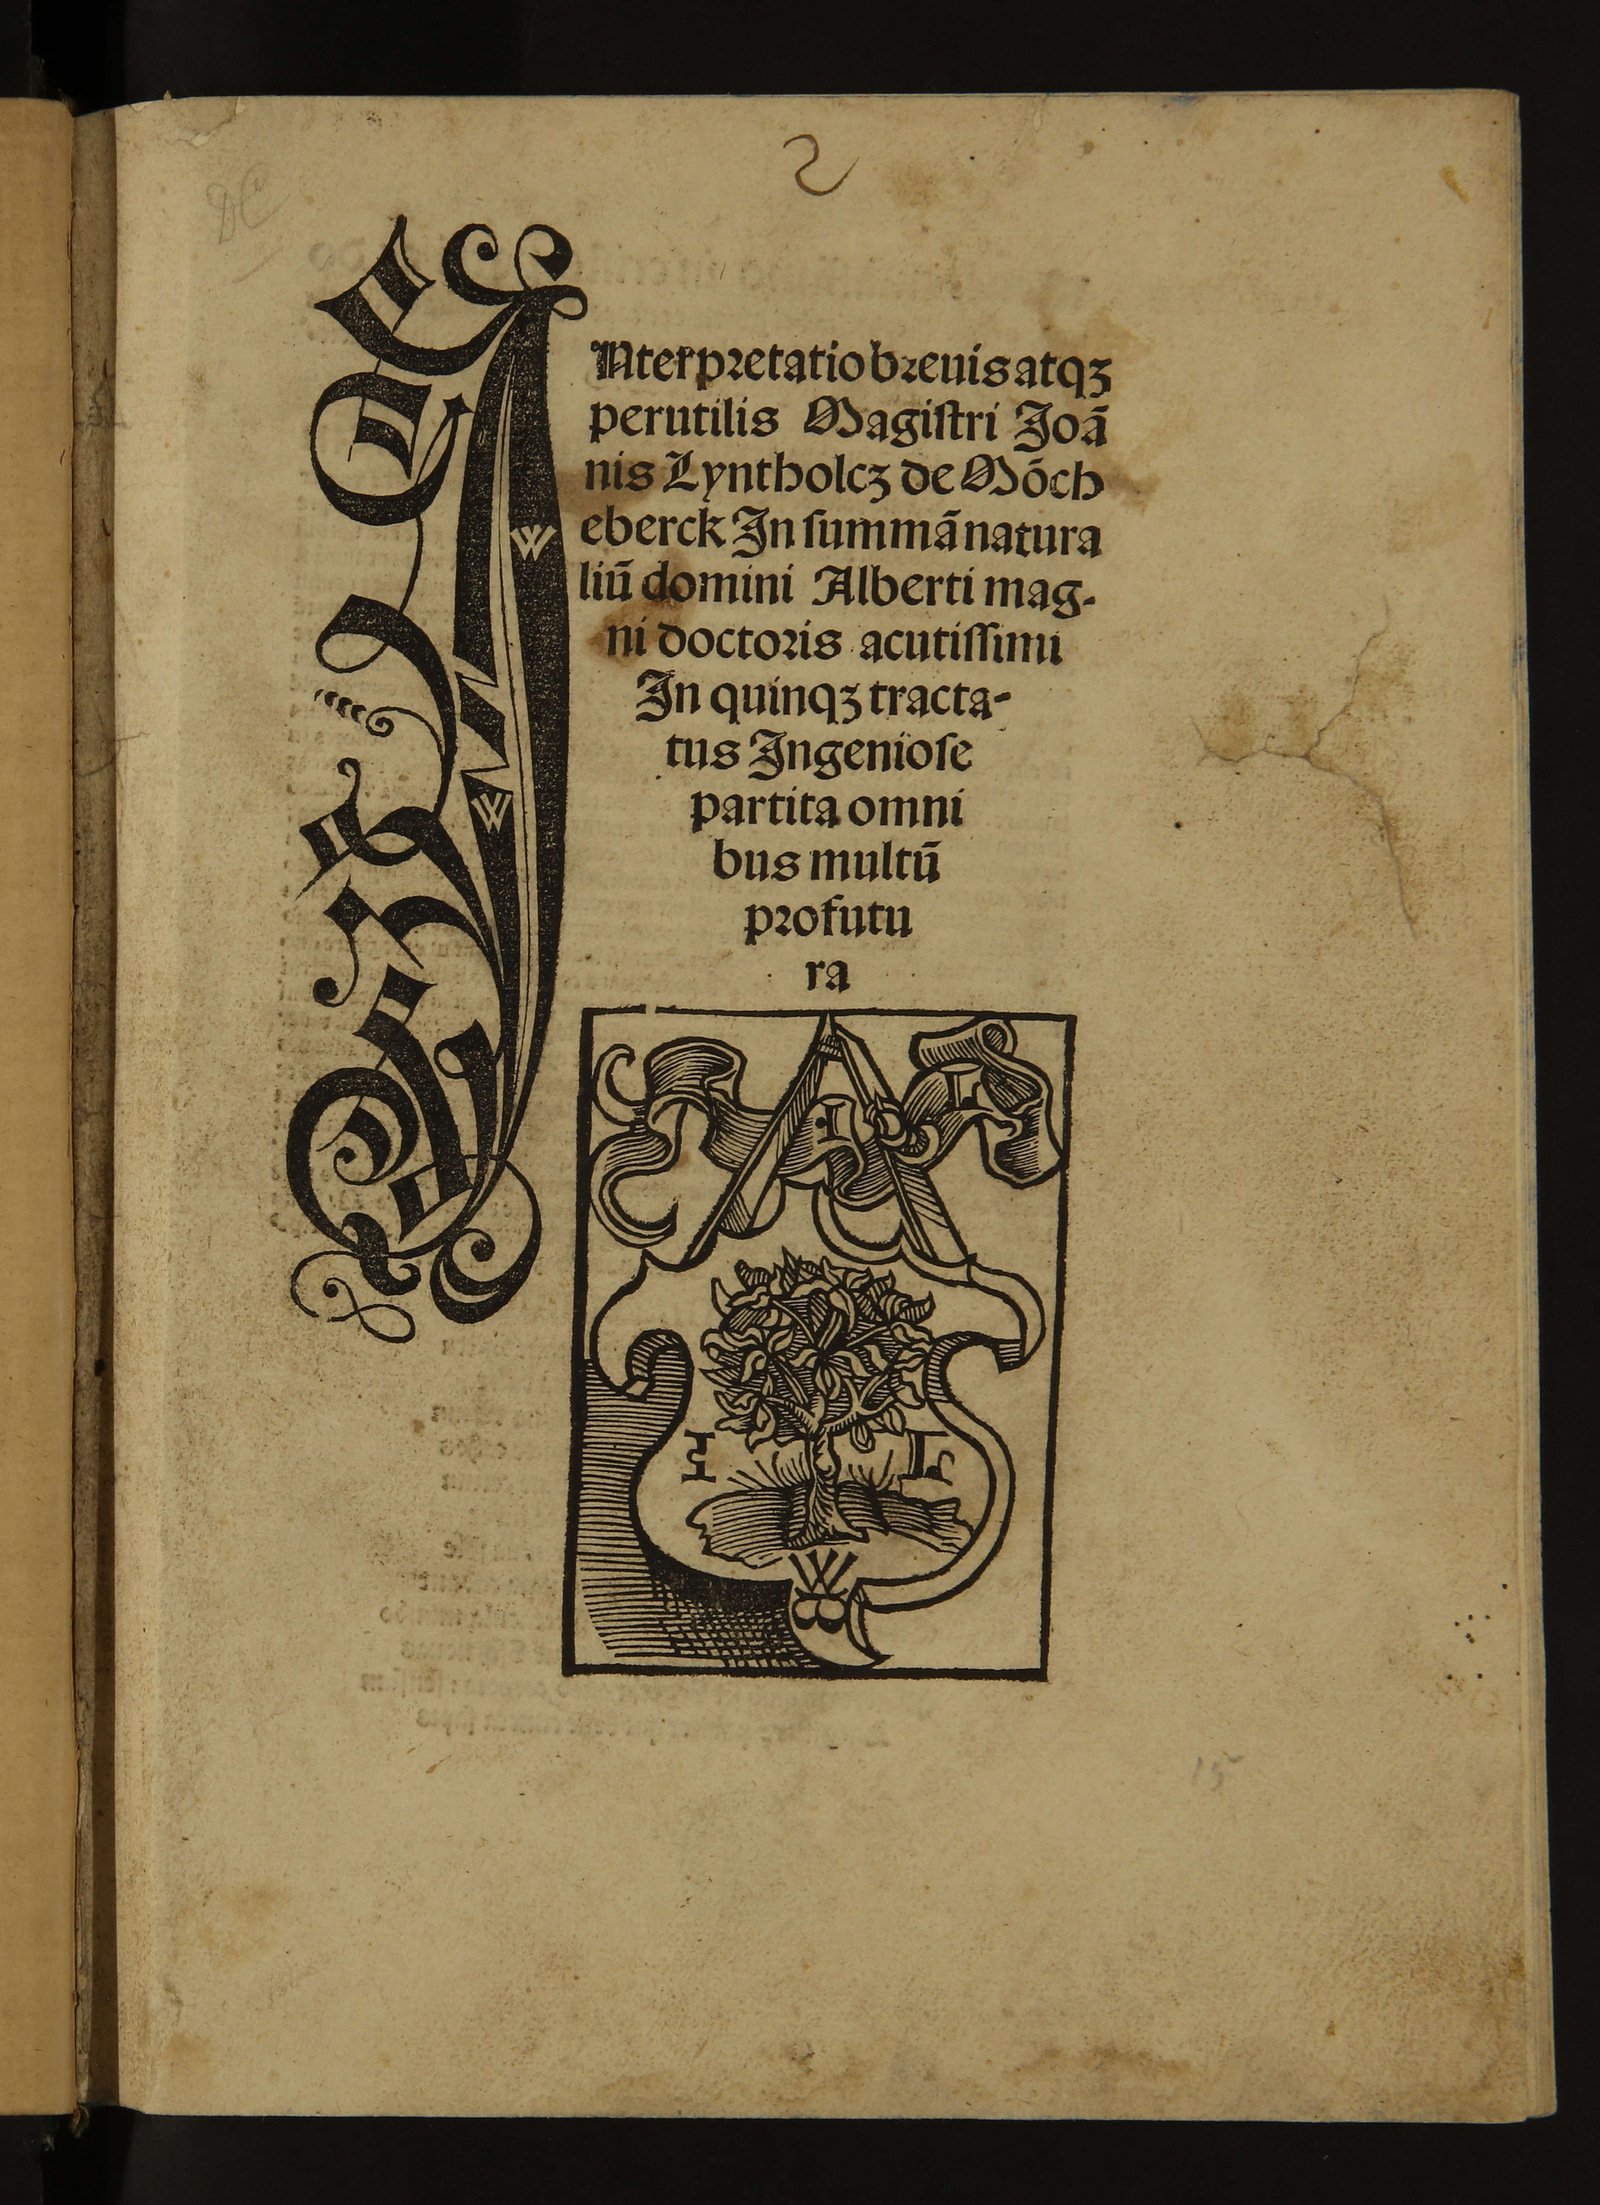 2
DC
INterpretatio breuis atqȝ
perutilis Magistri Joā
nis Lyntholcȝ de Mōch
eberck In summā natura
liū domini Alberti mag-
ni doctoris acutissimi
In quinqȝ tracta-
tus Ingeniose
partita omni
bus multū
profutu
ra
W
W
I L
I L
W
B
15